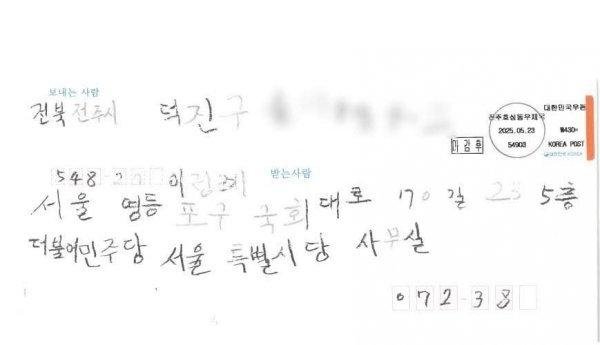 보내는 사람
전북 전주시 덕진구
전주효성동우체국
2025.05.23
54903
마감후
대한민국우편
₩430
KOREA POST
548
받는사람
서울 영등포구 국회대로 70길 23 5층
더불어민주당 서울특별시당 사무실
072-38